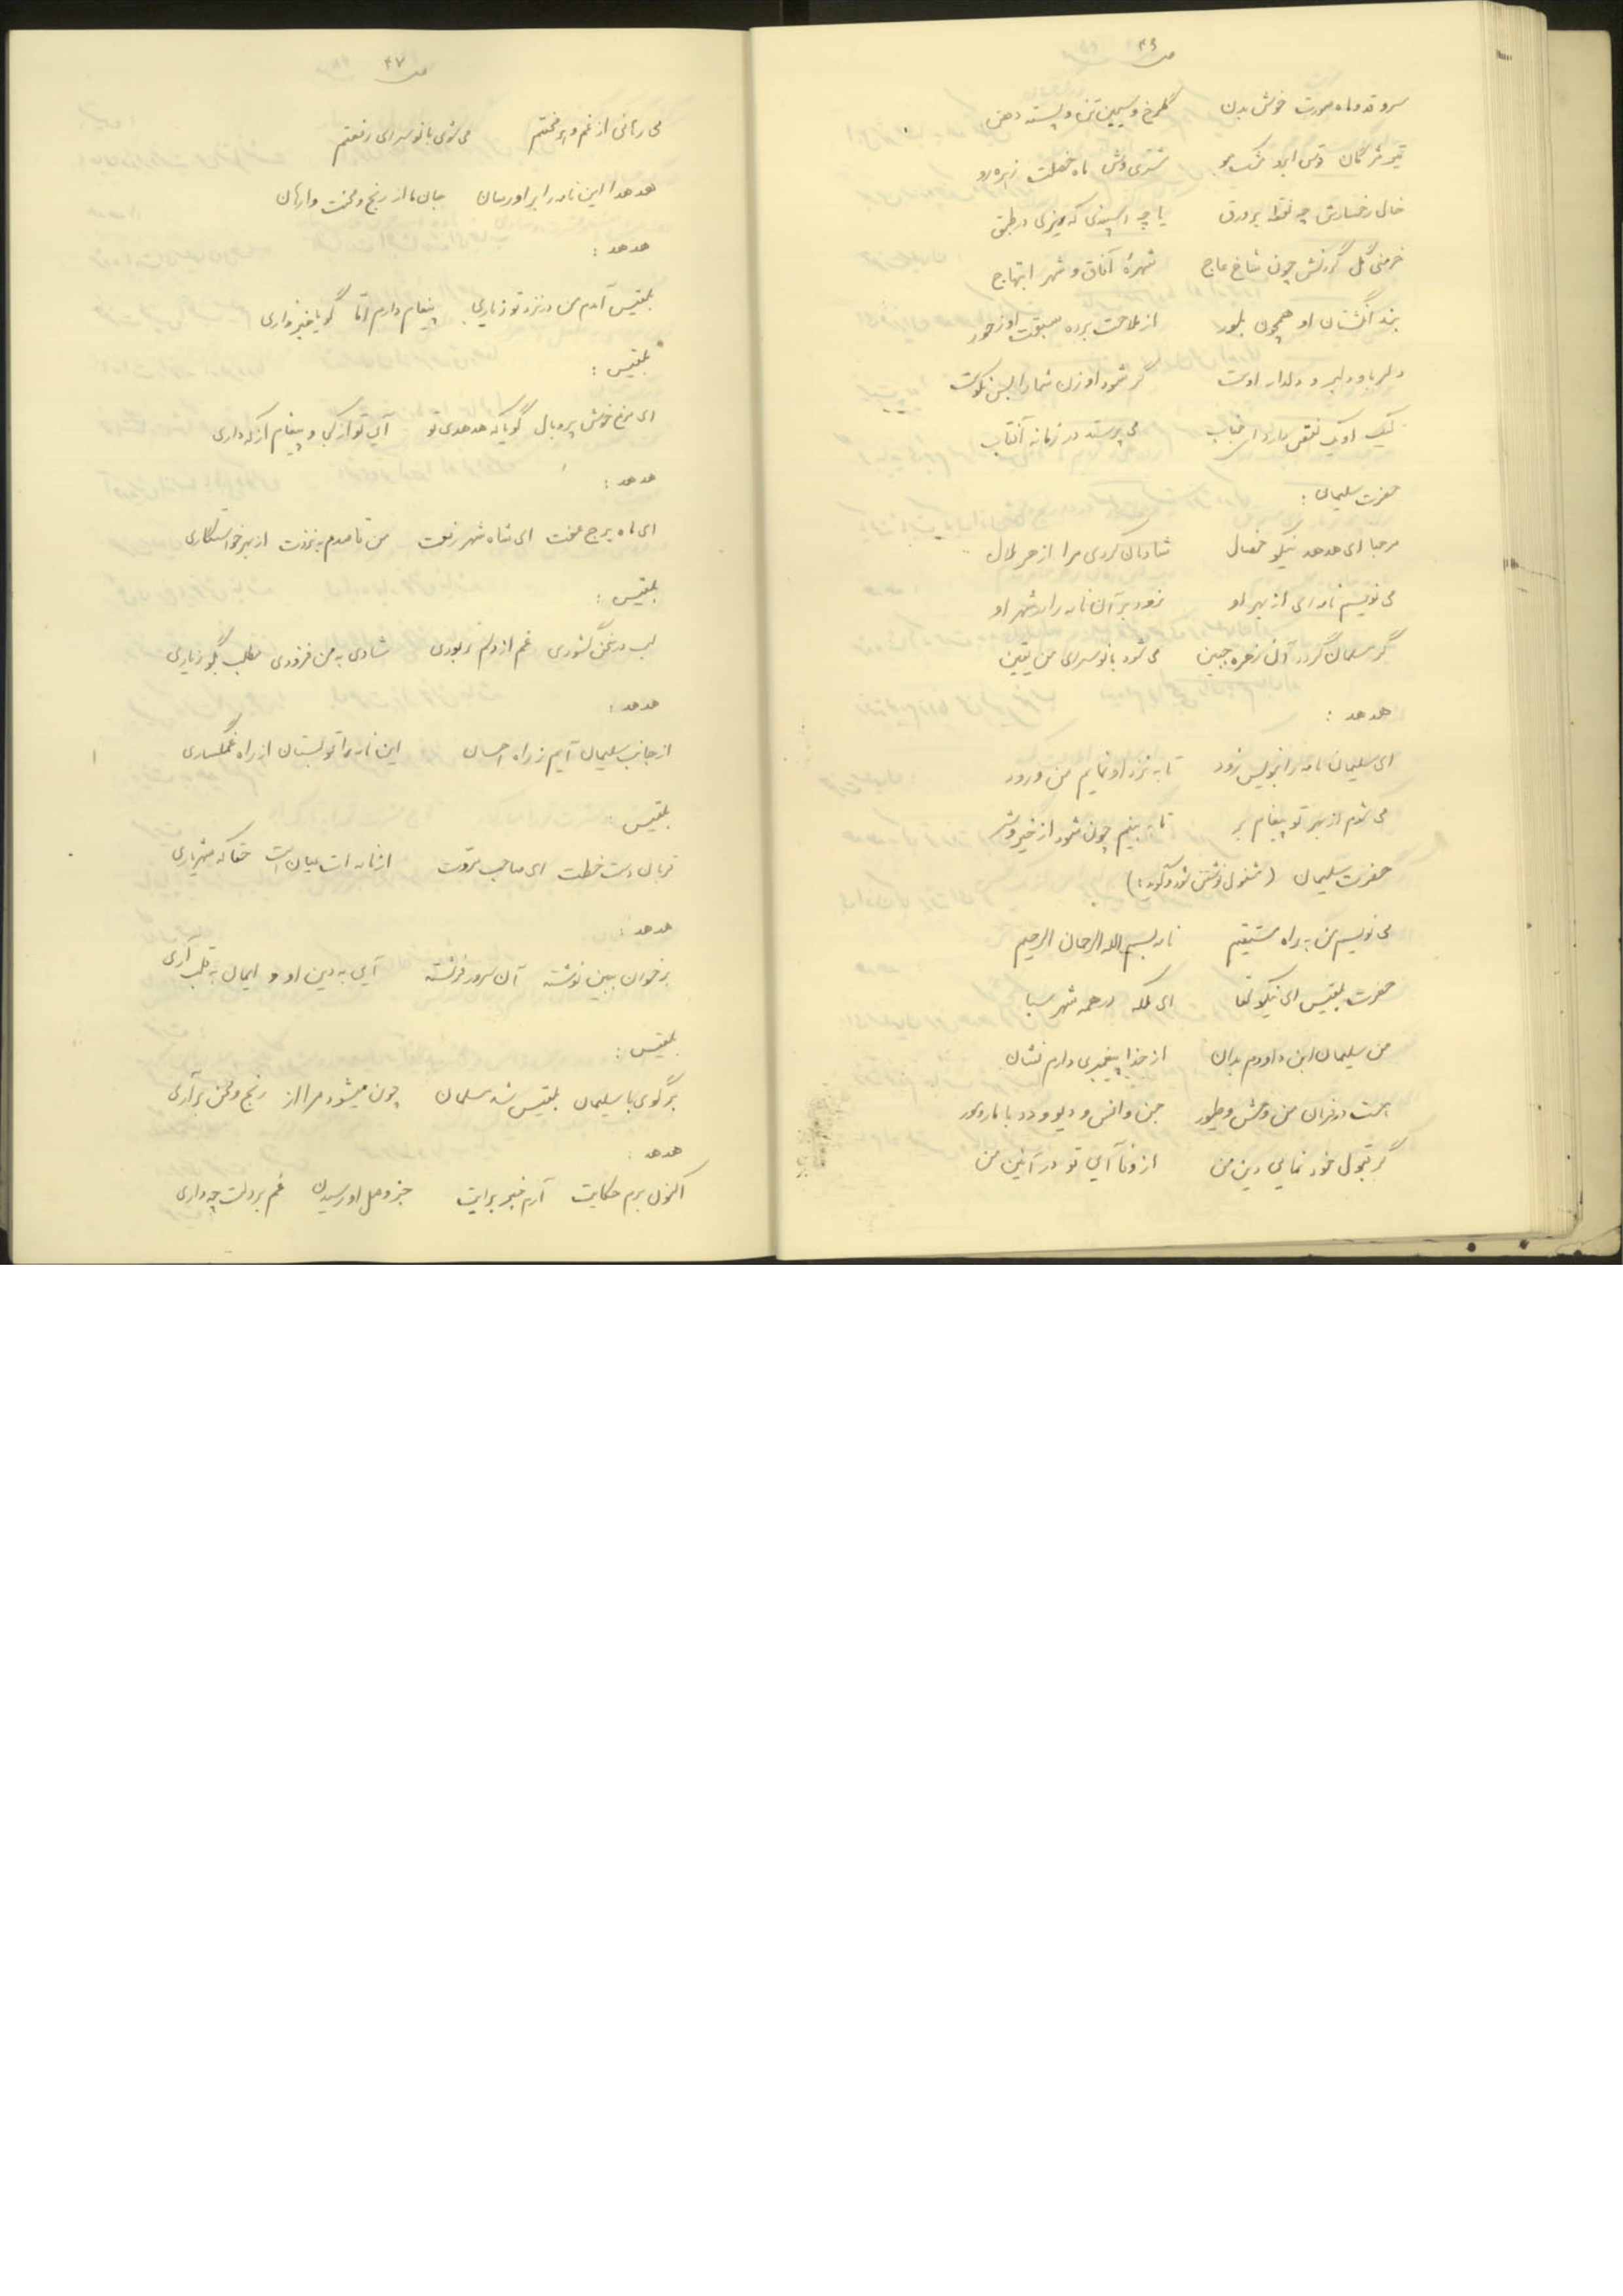 ص ۴۶
سرو قد و ماه صورت خوش بدن گلرخ و سیمین تن و پسته دهن
تیر مژگان قوس ابرو مشک مو مشتری وش ماه خصلت زهره رو
خال رخسارش چو نقطه بر ورق یا چو اسپندی که ریزی در طبق
خرمنی گل گردنش چون شاخ عاج شهرهٔ آفاق و شهر ابتهاج
بند انگشتان او همچون بلور از ملاحت برده سبقت او ز حور
دلربا و دلبر و دلدار اوست گر شود او زن شما را بس نکوست
لیک او یک نقص دارد ای جناب می پرستد در زمانه آفتاب
حضرت سلیمان :
مرحبا ای هدهد نیکو خصال شادمان کردی مرا از هر ملال
می نویسم نامه ای از بهر او زود بر آن نامه را در شهر او
گر مسلمان گردد آن زهره جبین می شود بانو سرای من یقین
هدهد :
ای سلیمان نامه را بنویس زود تا به نزد او نمایم من ورود
می شوم از بهر تو پیغام بر تا ببینم چون شود از خیر و شر
حضرت سلیمان (مشغول نوشتن شود و گوید :)
می نویسم من به راه مستقیم نامه بسم الله الرحمان الرحیم
حضرت بلقیس ای نیکو لقا ای ملکه در همه شهر سبا
من سلیمان ابن داودم بدان از خدا پیغمبری دارم نشان
هست در فرمان من وحش و طیور جن و انس و دیو و دد با مار و مور
گر قبول خود نمایی دین من از وفا آیی تو در آئین من
ص ۴۷
می رهانی از غم و پر محنتم می شوی بانو سرای رفعتم
هدهدا این نامه را بر او رسان جان ما از رنج و محنت وارهان
هدهد :
بلقیس آمدم من در نزد تو ز یاری پیغام دارم امّا گویا خبر نداری
بلقیس :
ای مرغ خوش پر و بال گویا که هدهدی تو آیی تو از کجا و پیغام از که داری
هدهد :
ای ماه برج عفت ای شاه شهر رفعت من قاصدم به نزدت از بهر خواستگاری
بلقیس :
لب در سخن گشودی غم از دلم ربودی شادی به من فزودی مطلب بگو ز یاری
هدهد :
از جانب سلیمان آیم ز راه احسان این نامه را تو بستان از راه غمگساری
بلقیس :
قربان دست خطت ای صاحب مروت از نامه ات عیان است حقا که شهریاری
هدهد :
برخوان ببین نوشته آن سرور فرشته آیی به دین او و ایمان به قلب آری
بلقیس :
برگوی با سلیمان بلقیس شد مسلمان چون میشود مرا از رنج و محن برآری
هدهد :
اکنون برم حکایت آرم خبر برایت جز وصل او رسیدن غم بر دلت چه داری